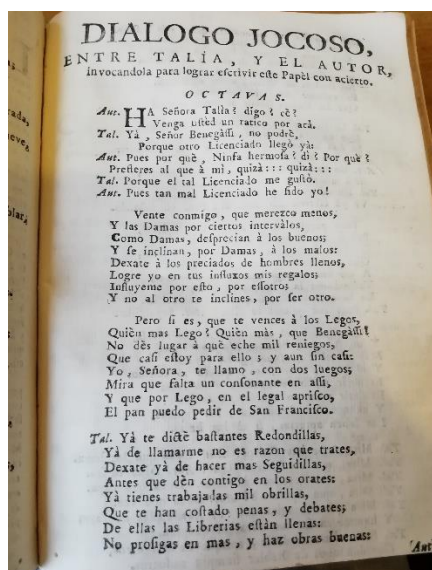 DIALOGO JOCOSO,
ENTRE TALÍA, Y EL AUTOR,
invocandola para lograr eſcrivir eſte Papèl con acierto.
OCTAVAS.
Aut. HA Señora Talía? digo? cè?
Venga uſted un ratico por acà.
Tal. Yà, Señor Benegàſſi, no podrè,
Porque otro Licenciado llegò yà:
Aut. Pues por què, Ninfa hermoſa? dì? Por què?
Prefieres al que à mi, quizà::: quizà:::
Tal. Porque el tal Licenciado me guſtò.
Aut. Pues tan mal Licenciado he ſido yo!
Vente conmigo, que merezco menos,
Y las Damas por ciertos intervàlos,
Como Damas, deſprecian à los buenos;
Y ſe inclinan, por Damas, à los malos:
Dexate à los preciados de hombres llenos,
Logre yo en tus influxos mis regalos;
Influyeme por eſto, por eſſotro;
Y no al otro te inclines, por ſer otro.
Pero ſi es, que te vences à los Legos,
Quièn mas Lego? Quièn màs, que Benegàſſi?
No dès lugar à què eche mil reniegos,
Que caſi eſtoy para ello; y aun ſin caſi:
Yo, Señora, te llamo, con dos luegos;
Mira que falta un conſonante en aſſi,
Y que por Lego, en el legal apriſco,
El pan puedo pedir de San Franciſco.
Tal. Yà te dictè baſtantes Redondillas,
Yà de llamarme no es razon que trates,
Dexate yà de hacer mas Seguidillas,
Antes que dèn contigo en los orates:
Yà tienes trabajadas mil obrillas,
Que te han coſtado penas, y debates;
De ellas las Librerias eſtàn llenas:
No proſigas en mas, y haz obras buenas:
Aut